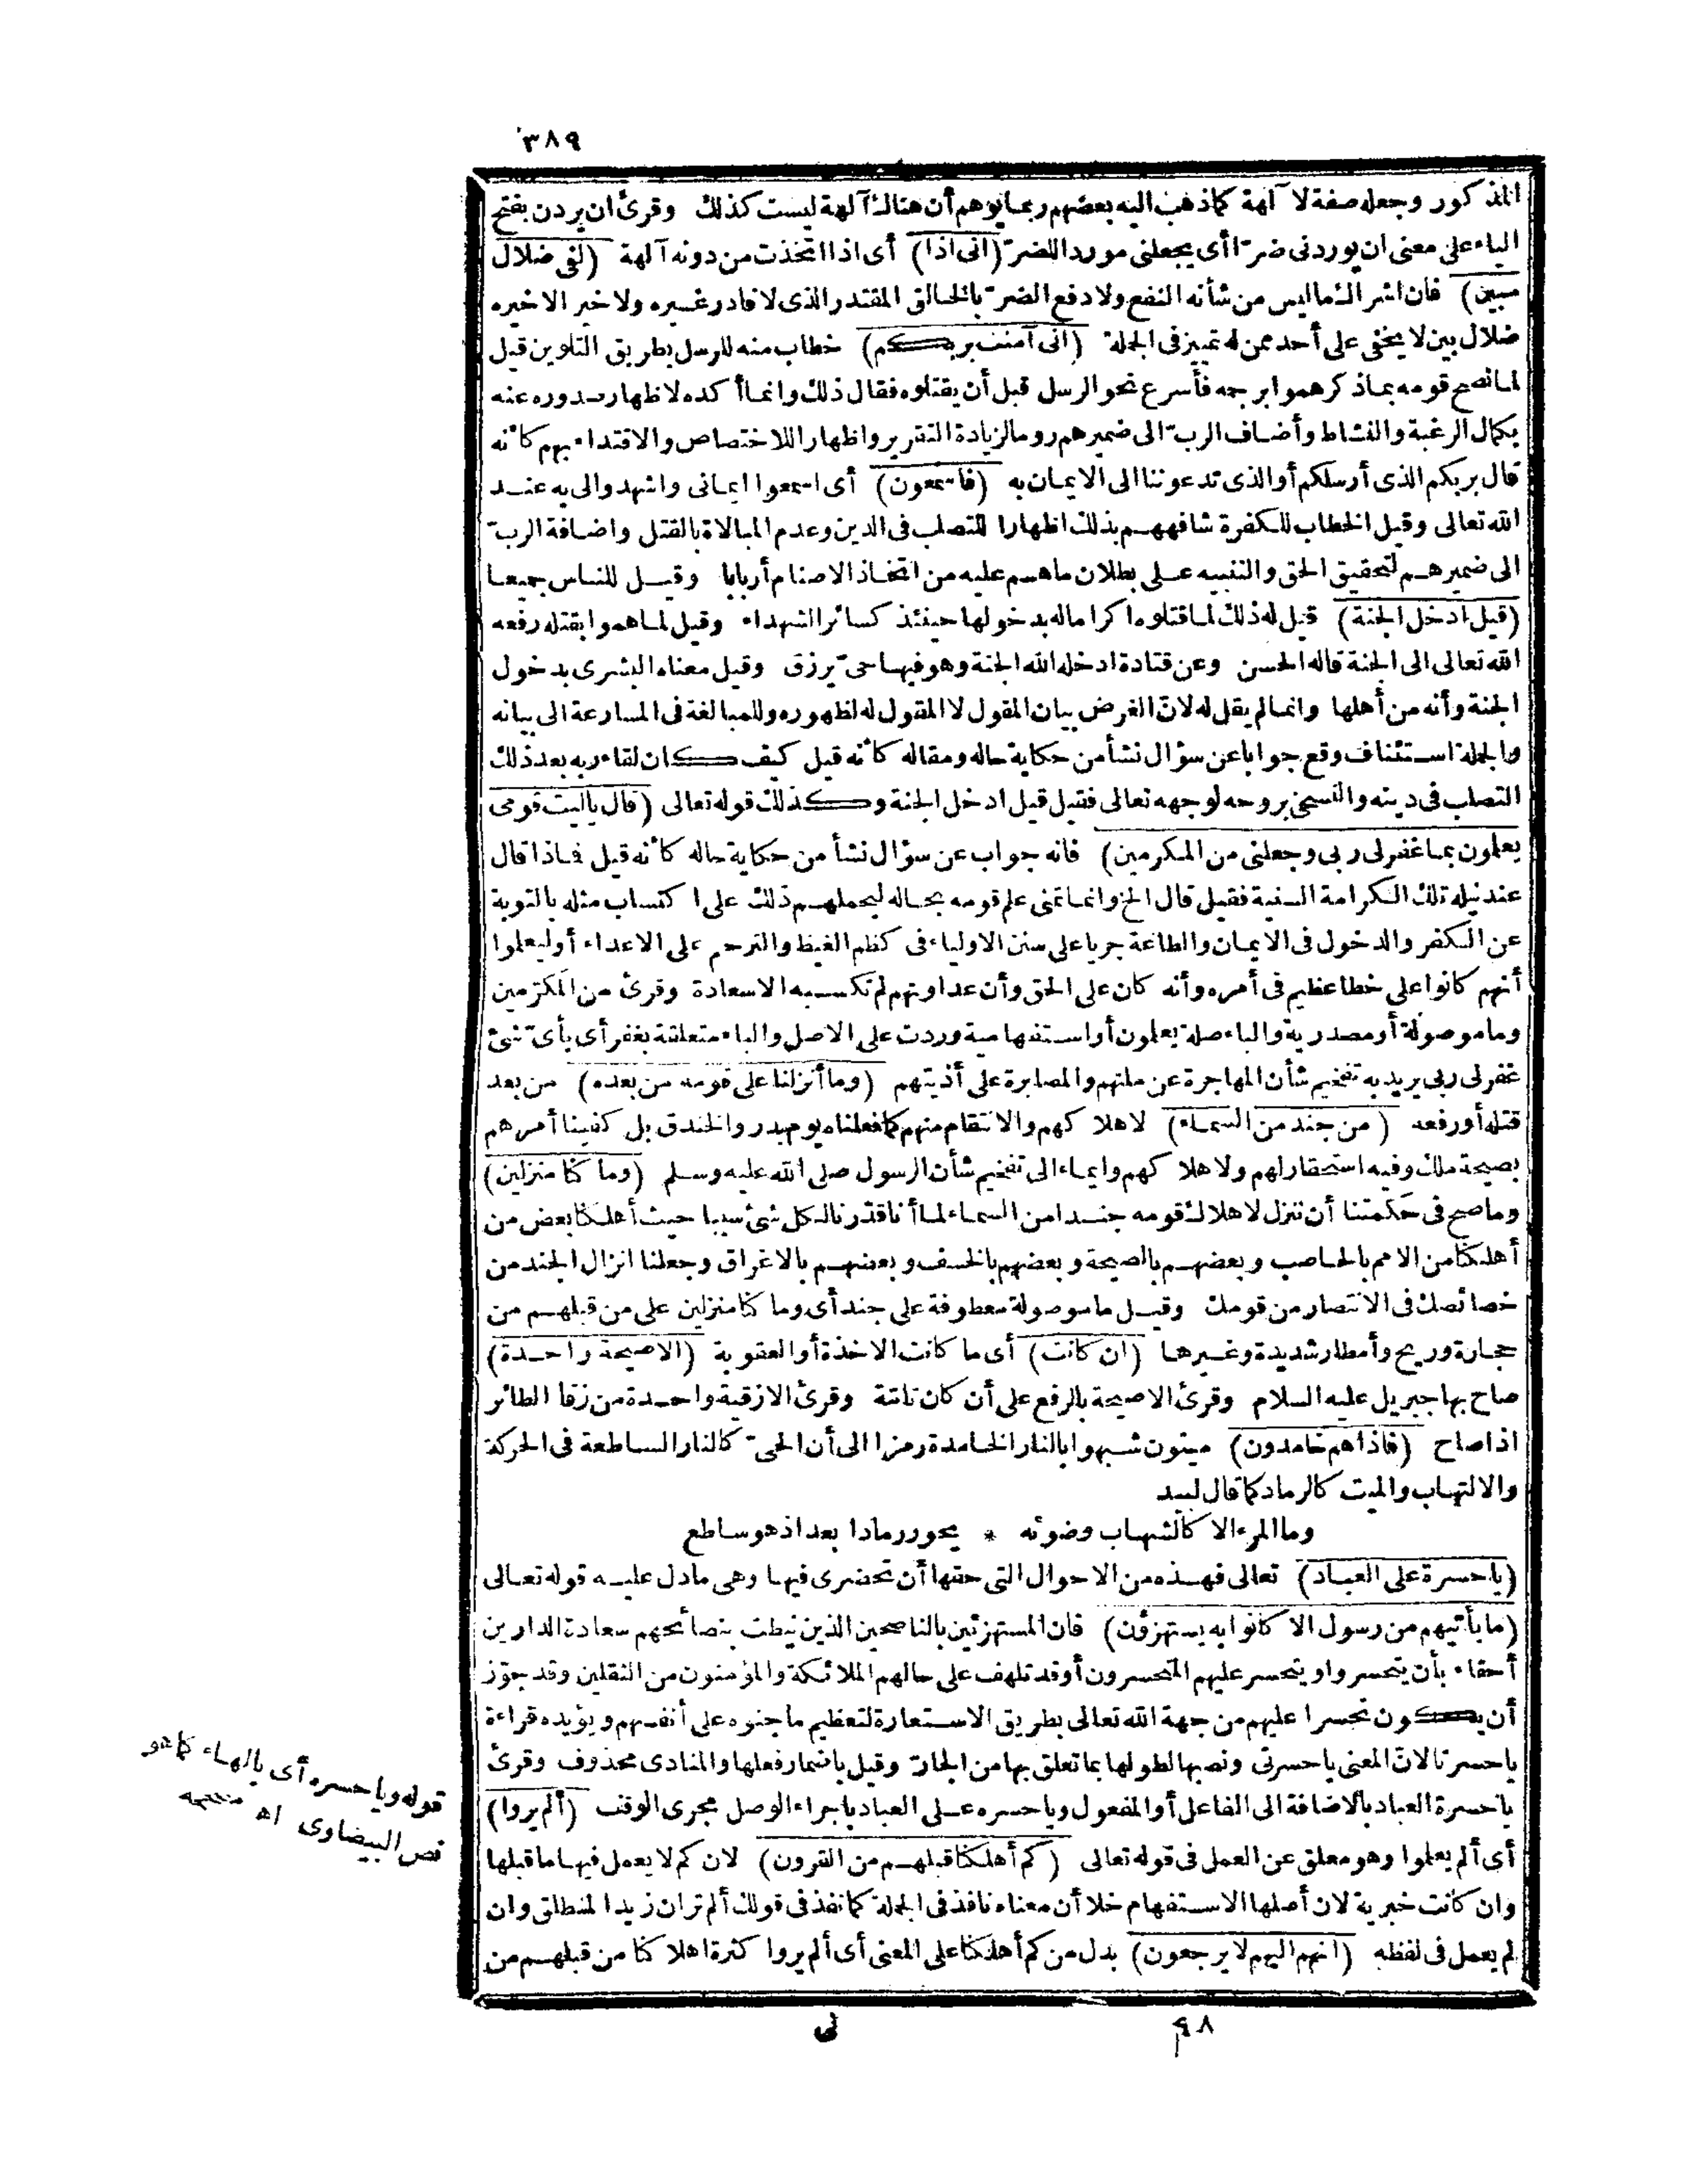 ٣٨٩
المذكور وجعله صفة لا آلهة كما ذهب اليه بعضهم ربما يوهم أن هنالك آلهة ليست كذلك وقرئ ان يردن بفتح
الياء على معنى ان يوردنى ضرّا أى يجعلنى موردا للضرّ (انى اذا) أى اذا اتخذت من دونه آلهة (لفى ضلال
مبين) فان اشراك ما ليس من شأنه النفع ولا دفع الضرّ بالخالق المقتدر الذى لا قادر غيره ولا خير الا خيره
ضلال بين لا يخفى على أحد ممن له تمييز فى الجملة (انى آمنت بربكم) خطاب منه للرسل بطريق التلوين قيل
لما نصح قومه بما ذكر هموا برجمه فأسرع نحو الرسل قبل أن يقتلوه فقال ذلك وانما أكده لاظهار صدوره عنه
بكمال الرغبة والنشاط وأضاف الربّ الى ضميرهم روما لزيادة التقرير واظهارا للاختصاص والاقتداء بهم كأنه
قال بربكم الذى أرسلكم أو الذى تدعوننا الى الايمان به (فاسمعون) أى اسمعوا ايمانى واشهدوا لى به عند
الله تعالى وقيل الخطاب للكفرة شافههم بذلك اظهارا للتصلب فى الدين وعدم المبالاة بالقتل واضافة الربّ
الى ضميرهم لتحقيق الحق والتنبيه على بطلان ما هم عليه من اتخاذ الاصنام أربابا وقيل للناس جميعا
(قيل ادخل الجنة) قيل له ذلك لما قتلوه اكراما له بدخولها حينئذ كسائر الشهداء وقيل لما هموا بقتله رفعه
الله تعالى الى الجنة قاله الحسن وعن قتادة ادخله الله الجنة وهو فيها حىّ يرزق وقيل معناه البشرى بدخول
الجنة وأنه من أهلها وانما لم يقل له لانّ الغرض بيان المقول لا المقول له لظهوره وللمبالغة فى المسارعة الى بيانه
والجملة استئناف وقع جوابا عن سؤال نشأ من حكاية حاله ومقاله كأنه قيل كيف كان لقاء ربه بعد ذلك
التصلب فى دينه والتسخى بروحه لوجهه تعالى فقيل قيل ادخل الجنة وكذلك قوله تعالى (قال ياليت قومى
يعلمون بما غفر لى ربى وجعلنى من المكرمين) فانه جواب عن سؤال نشأ من حكاية حاله كأنه قيل فماذا قال
عند نيله تلك الكرامة السنية فقيل قال الخ وانما تمنى علم قومه بحاله ليحملهم ذلك على اكتساب مثله بالتوبة
عن الكفر والدخول فى الايمان والطاعة جريا على سنن الاولياء فى كظم الغيظ والترحم على الاعداء أو ليعلموا
أنهم كانوا على خطا عظيم فى أمره وأنه كان على الحق وأن عداوتهم لم تكسبه الا سعادة وقرئ من المكرّمين
وما موصولة أو مصدرية والباء صلة يعلمون أو استفهامية وردت على الاصل والباء متعلقة بغفر أى بأىّ شئ
غفر لى ربى يريد به تفخيم شأن المهاجرة عن ملتهم والمصابرة على أذيتهم (وما أنزلنا على قومه من بعده) من بعد
قتله أو رفعه (من جند من السماء) لاهلاكهم والانتقام منهم كما فعلناه يوم بدر والخندق بل كفينا أمرهم
بصيحة ملك وفيه استحقار لهم ولاهلاكهم وايماء الى تفخيم شأن الرسول صلى الله عليه وسلم (وما كنا منزلين)
وما صح فى حكمتنا أن ننزل لاهلاك قومه جندا من السماء لما أنا قدّرنا لكل شئ سببا حيث أهلكنا بعض من
أهلكنا من الامم بالحاصب وبعضهم بالصيحة وبعضهم بالخسف وبعضهم بالاغراق وجعلنا انزال الجند من
خصائصك فى الانتصار من قومك وقيل ما موصولة معطوفة على جند أى وما كنا منزلين على من قبلهم من
حجارة وريح وأمطار شديدة وغيرها (ان كانت) أى ما كانت الاخذة أو العقوبة (الا صيحة واحدة)
صاح بها جبريل عليه السلام وقرئ الا صيحة بالرفع على أن كان تامّة وقرئ الا زقية واحدة من زقا الطائر
اذا صاح (فاذا هم خامدون) ميتون شبهوا بالنار الخامدة رمزا الى أن الحىّ كالنار الساطعة فى الحركة
والالتهاب والميت كالرماد كما قال لبيد
وما المرء الا كالشهاب وضوئه * يحور رمادا بعد اذ هو ساطع
(يا حسرة على العباد) تعالى فهذه من الاحوال التى حقها أن تحضرى فيها وهى ما دل عليه قوله تعالى
(ما يأتيهم من رسول الا كانوا به يستهزؤن) فان المستهزئين بالناصحين الذين نيطت بنصائحهم سعادة الدارين
أحقاء بأن يتحسروا ويتحسر عليهم المتحسرون أو قد تلهف على حالهم الملائكة والمؤمنون من الثقلين وقد جوّز
أن يكون تحسرا عليهم من جهة الله تعالى بطريق الاستعارة لتعظيم ما جنوه على أنفسهم ويؤيده قراءة
يا حسرتا لانّ المعنى يا حسرتى ونصبها لطولها بما تعلق بها من الجارّ وقيل باضمار فعلها والمنادى محذوف وقرئ
يا حسرة العباد بالاضافة الى الفاعل أو المفعول ويا حسره على العباد باجراء الوصل مجرى الوقف (ألم يروا)
أى ألم يعلموا وهو معلق عن العمل فى قوله تعالى (كم أهلكنا قبلهم من القرون) لان كم لا يعمل فيها ما قبلها
وان كانت خبرية لان أصلها الاستفهام خلا أن معناه نافذ فى الجملة كما نفذ فى قولك ألم تر ان زيدا لمنطلق وان
لم يعمل فى لفظه (أنهم اليهم لا يرجعون) بدل من كم أهلكنا على المعنى أى ألم يروا كثرة اهلاكنا من قبلهم من
قوله ويا حسره أى بالهاء كما هو
نص البيضاوى اه مصححه
٩٨
نى